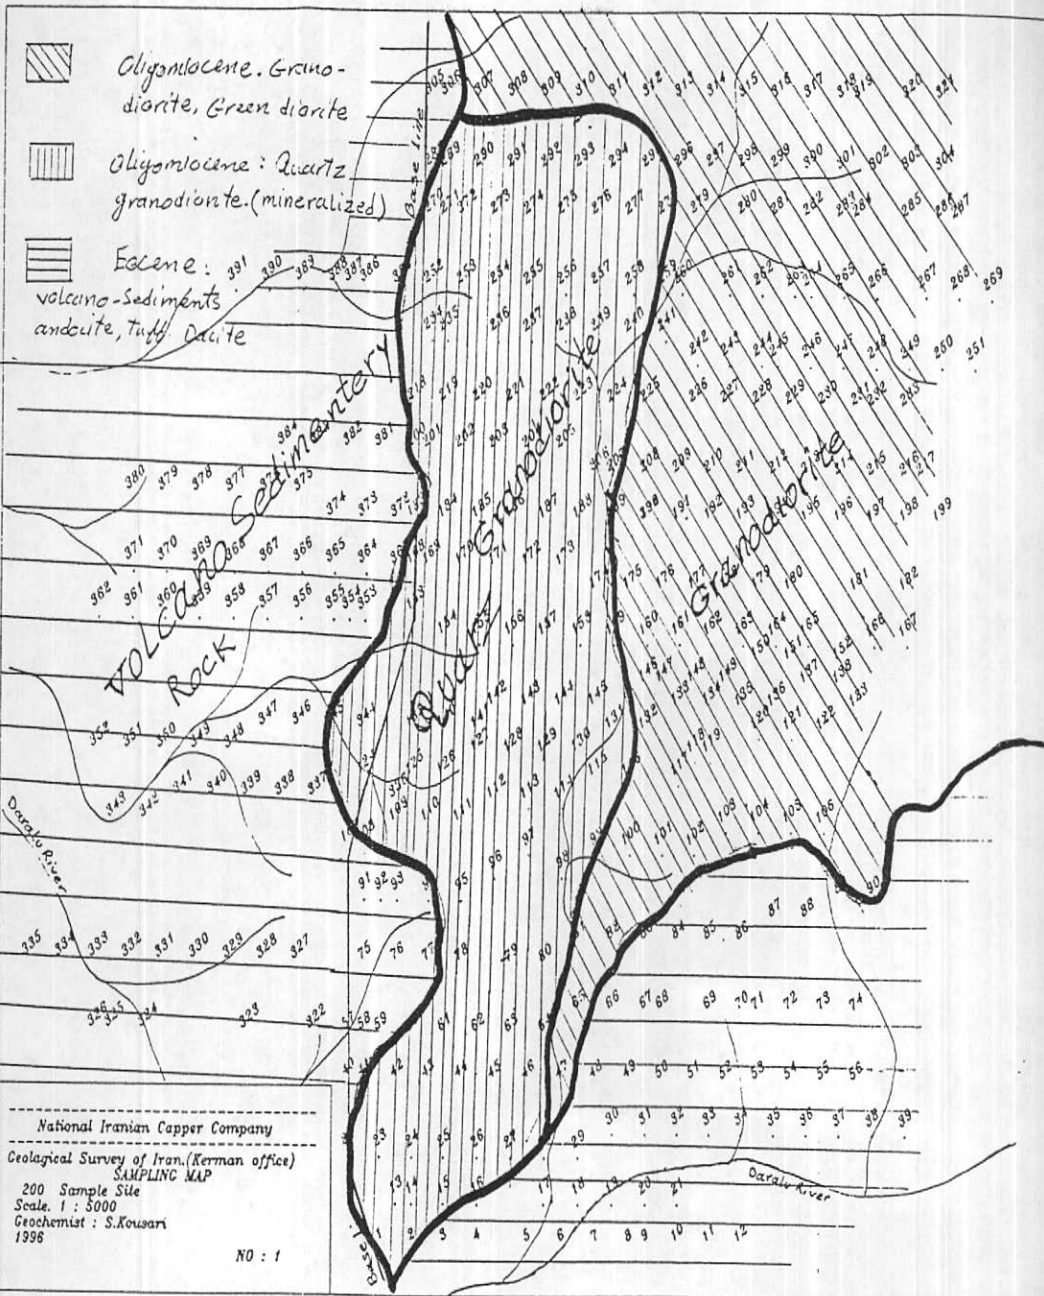 Oligomiocene. Grano-
diorite, Green diorite
Oligomiocene: Quartz
granodiorite. (mineralized)
Eocene:
volcano-Sediments
andocite, tuff. Dacite
Base line
305 306 307 308 309 310 311 312 313 314 315 316 317 318 319 320 321
289 290 291 292 293 294 295 296 297 298 299 300 301 302 303 304
270 271 272 273 274 275 276 277 279 280 281 282 283 284 285 286 287
391 390 389 388 387 386
252 253 254 255 256 257 258 259 260 261 262 263 264 265 266 267 268 269
234 235 236 237 238 239 240 241 242 243 244 245 246 247 248 249 250 251
218 219 220 221 222 223 224 225 226 227 228 229 230 231 232 233
384 382 381 201 202 203 204 205 208 209 210 211 212 214 215 216 217
380 379 378 377 375
374 373 372 184 185 187 188 190 191 192 193 195 196 197 198 199
371 370 369 368 367 366 365 364 169 170 171 172 173 175 176 177 179 180 181 182
362 361 360 359 358 357 356 355 354 353
154 156 157 158 160 161 162 163 164 165 166 167
VOLCANO Sedimentery
Rock
Quartz Granodiorite
Granodiorite
142 143 144 145 146 147 148 149 150 151 152
352 351 350 349 348 347 346 344
127 128 129 130 131 132 133 134 135 136 137 138
343 342 341 340 339 338 337 336 125 126
117 118 119 120 121 122 123
109 110 111 112 113 114 115
96 97 98 100 101 102 103 104 105 106
Daralu River
91 92 93 95 90
82 84 85 86 87 88
335 334 333 332 331 330 329 328 327 75 76 77 78 79 80
326 325 324 323 322 57 58 59 61 62 63 64 65 66 67 68 69 70 71 72 73 74
42 43 44 45 46 47 48 49 50 51 52 53 54 55 56
23 24 25 26 27 29 30 31 32 33 34 35 36 37 38 39
13 14 15 16 17 18 19 20 21
Daralu River
1 2 3 4 5 6 7 8 9 10 11 12
National Iranian Capper Company
Geolagical Survey of Iran,(Kerman office)
SAMPLING MAP
200 Sample Site
Scale. 1 : 5000
Geochemist : S.Kousari
1996
NO : 1